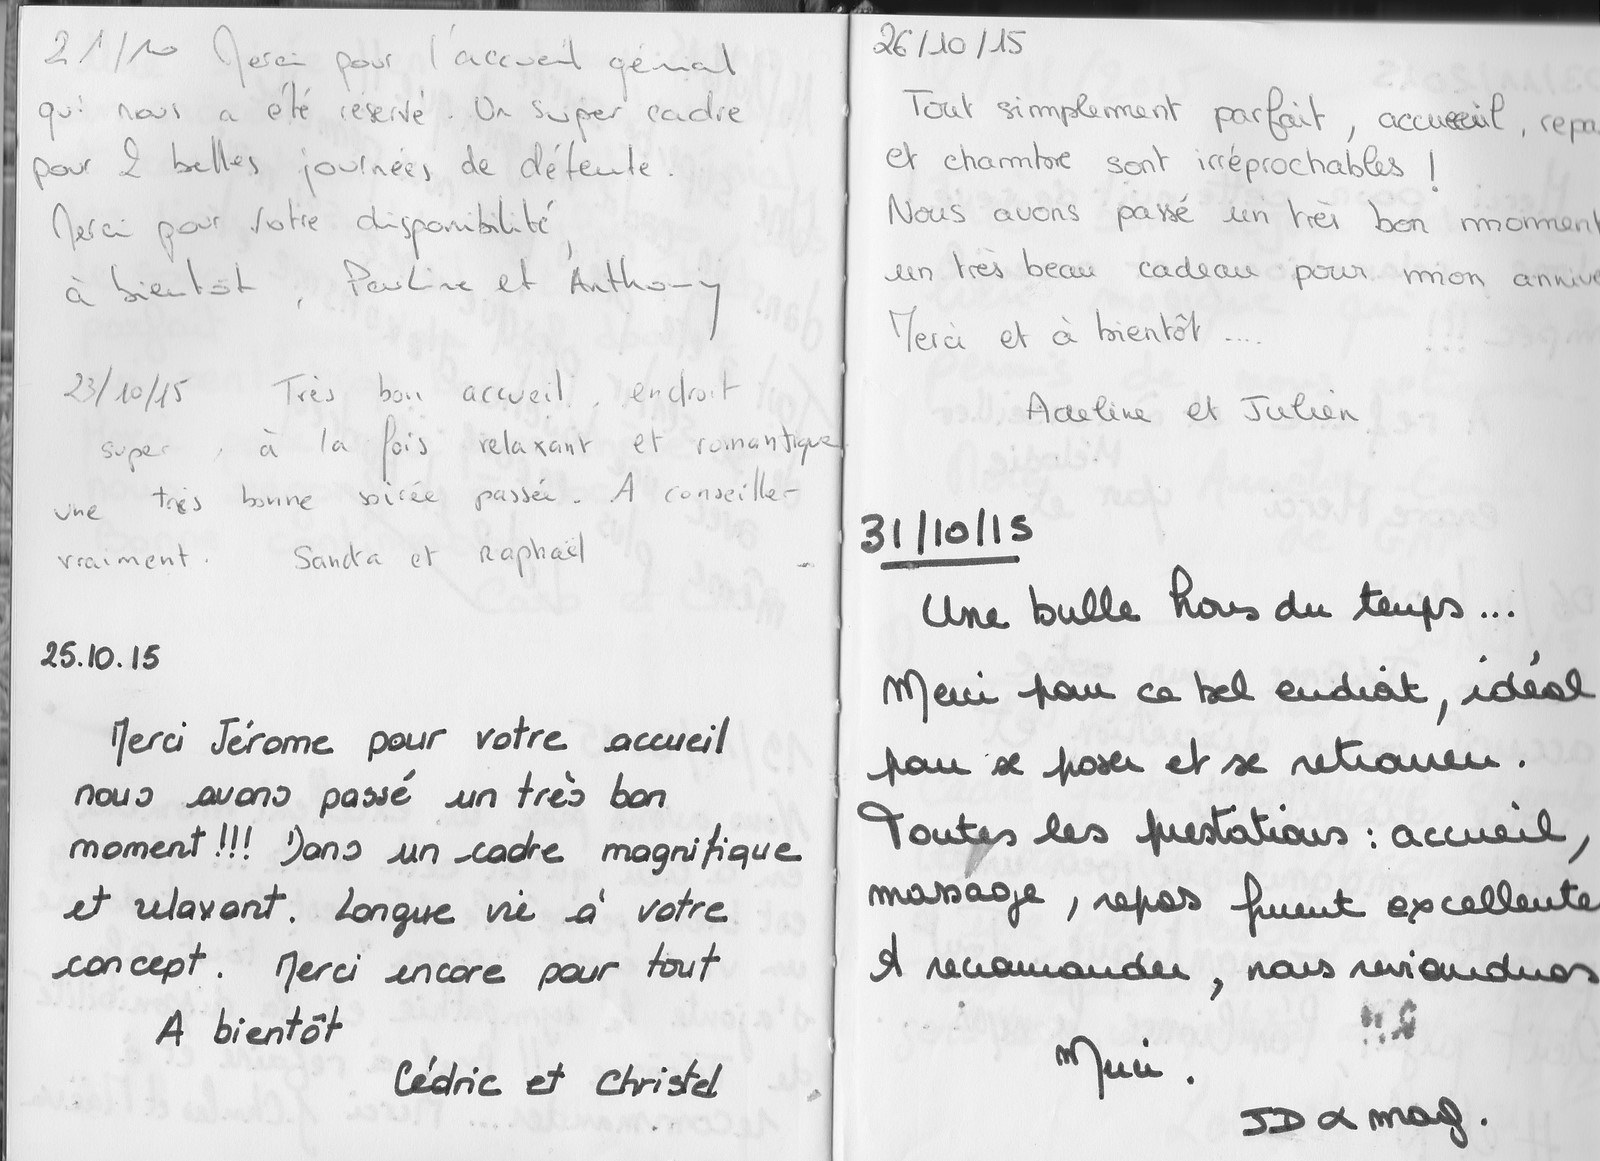 21/10 Merci pour l'accueil génial
qui nous a été réservé. Un super cadre
pour 2 belles journées de détente.
Merci pour votre disponibilité,
à bientôt, Pauline et Anthony
23/10/15 Très bon accueil, endroit
super, à la fois relaxant et romantique
une très bonne soirée passée. A conseiller
vraiment. Sandra et Raphaël
25.10.15
Merci Jérome pour votre accueil
nous avons passé un très bon
moment!!! Dans un cadre magnifique
et relaxant. Longue vie à votre
concept. Merci encore pour tout
A bientôt
Cédric et Christel
26/10/15
Tout simplement parfait, accueil, repa
et chambre sont irréprochables !
Nous avons passé un très bon moment
un très beau cadeau pour mon annive
Merci et à bientôt ....
Adeline et Julien
31/10/15
Une bulle hors du temps...
Merci pour ce bel endroit, idéal
pour se poser et se retrouver.
Toutes les prestations : accueil,
massage, repas furent excellente
A recommander, nous reviendrons
Merci.
JD & mag.